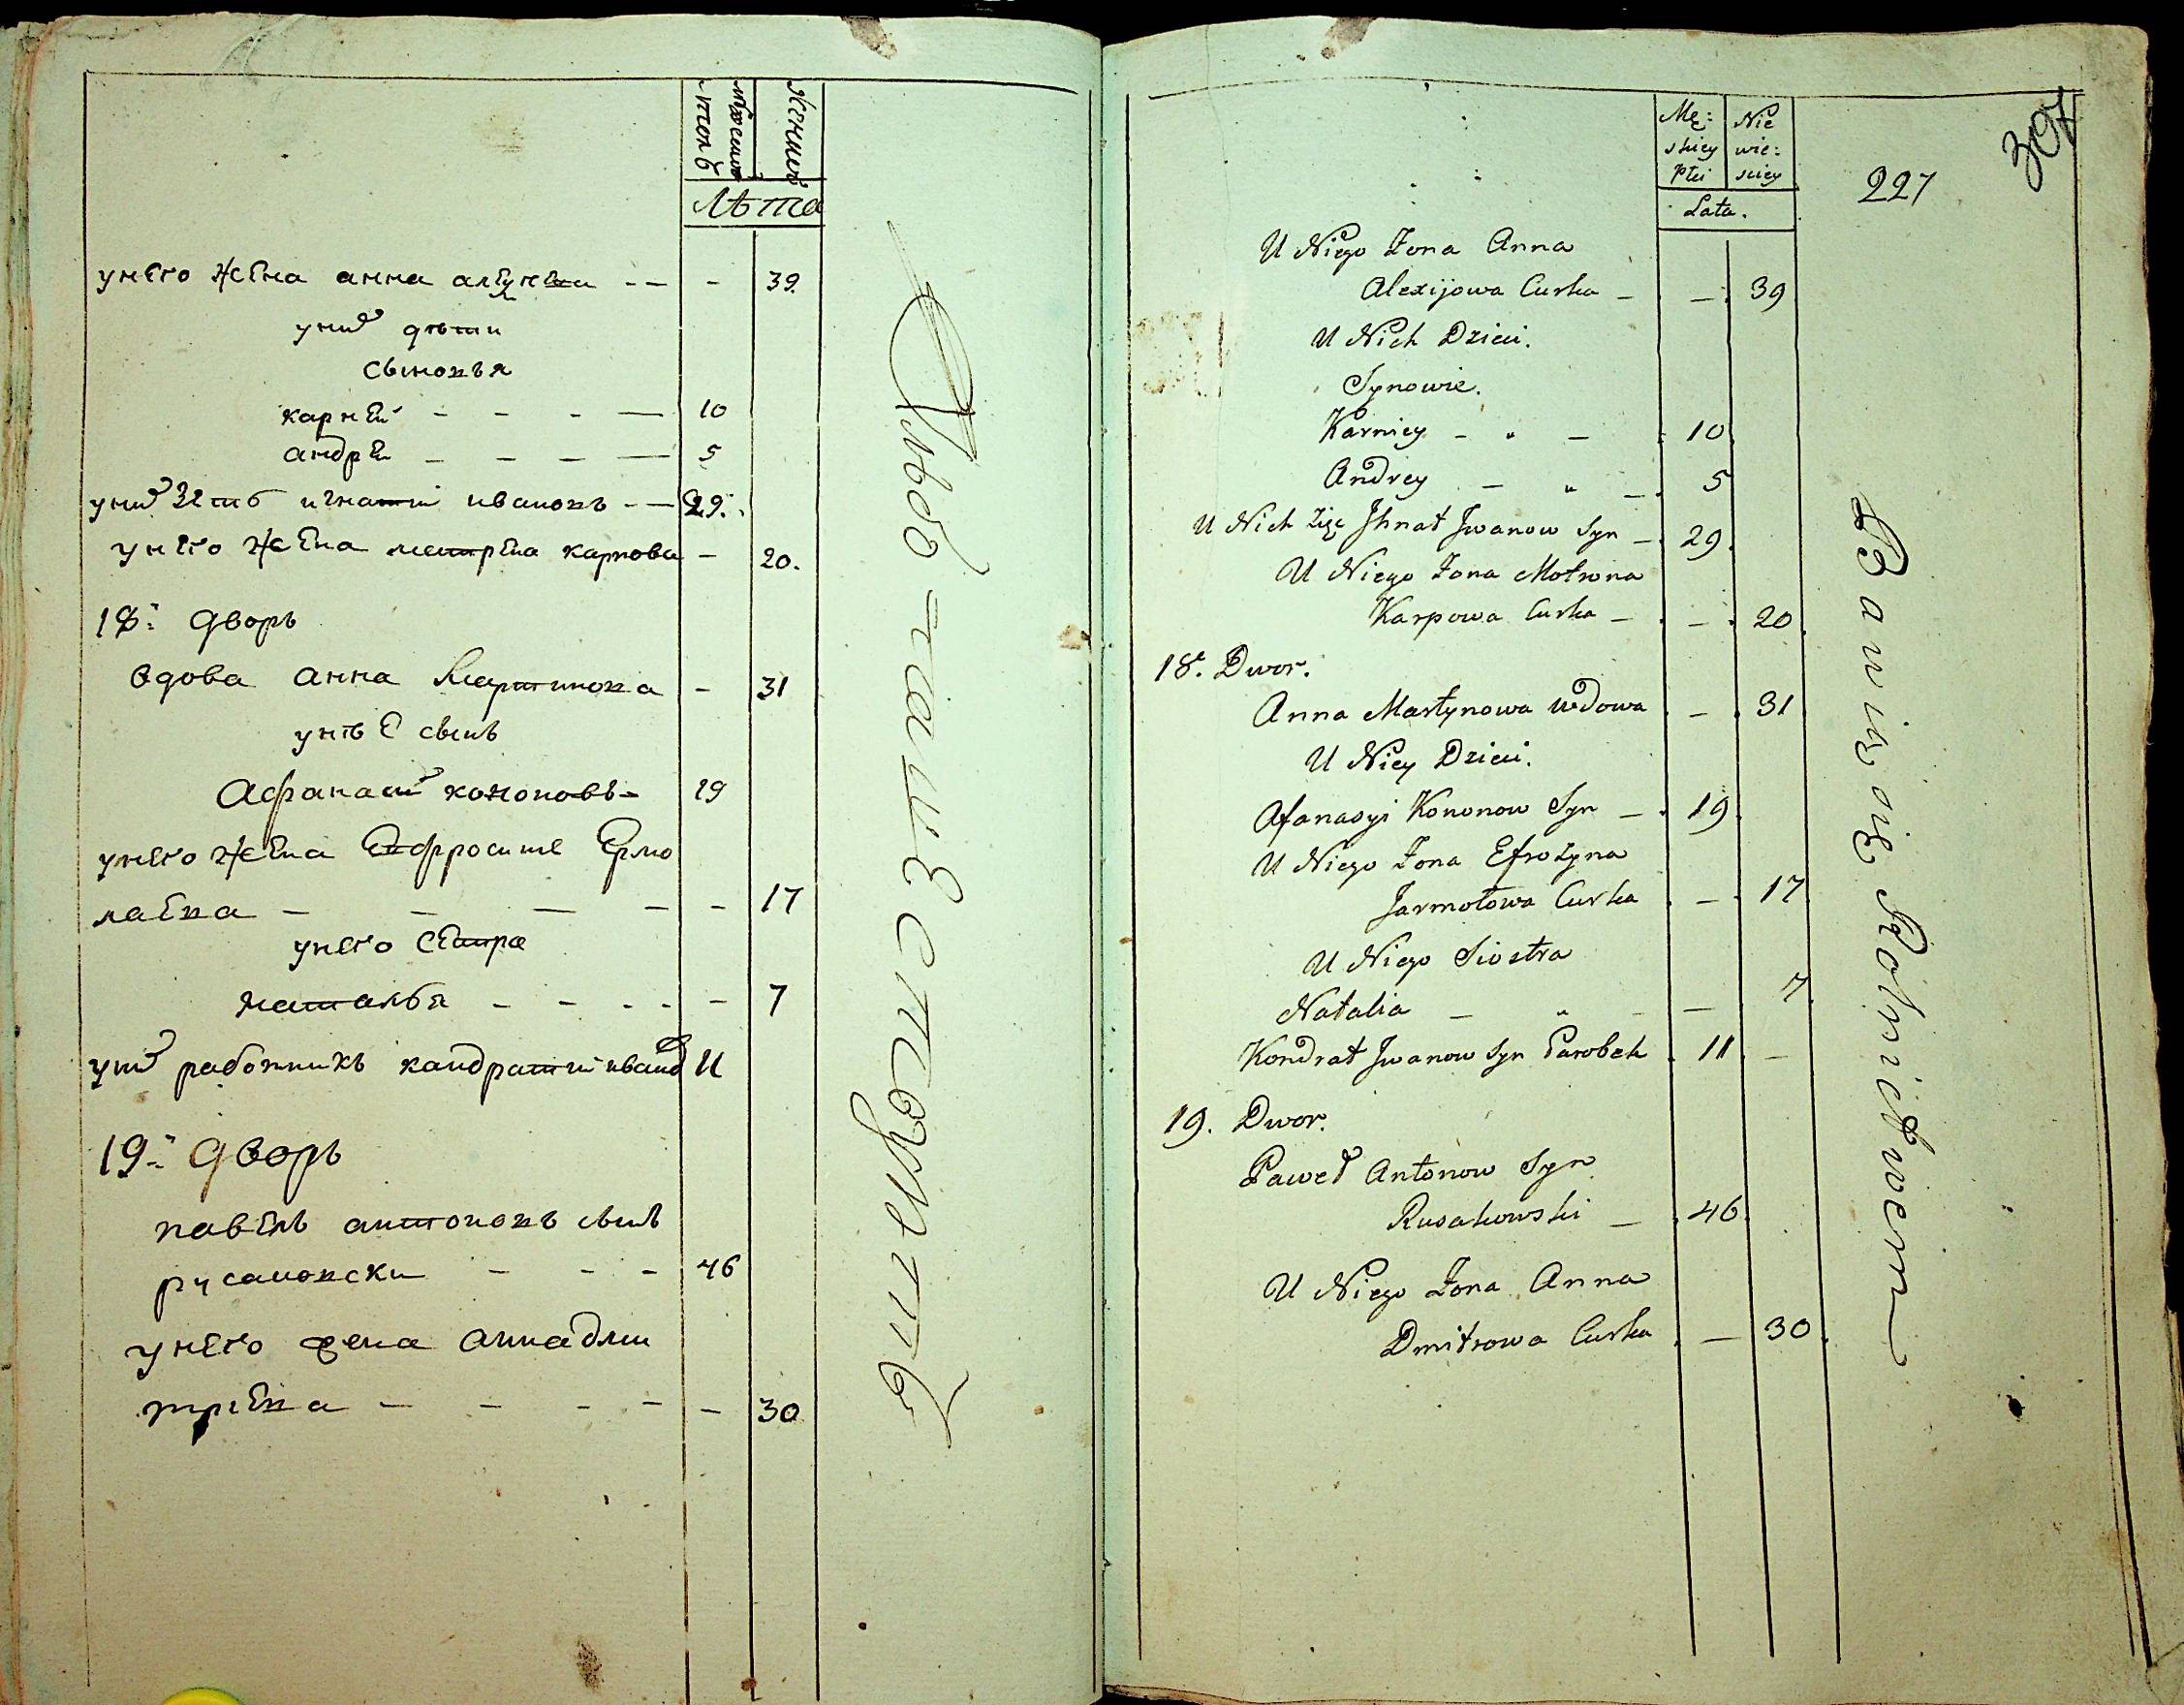 Женска
Лѣта
унего жена анна алексеева -- - 39.
уних дѣти
сыновья
карней - - - — 10
андрей - - - — 5
уних зять игнатий ивановъ - — 29.
унего жена матрена карпова - 20.
18: дворъ
вдова анна мартинова - 31
унѣе сынъ
Афанасий кононовъ - 19
унего жена Евфросиние Ермо
лаева - — — — - 17
унего сестра
наталья - - - - - 7
уних работникъ кандратий иванов 11
19: дворъ
павелъ антоновъ сынъ
русановски - - - 46
унего жена анна дми
триева - - - - - 30
227
Mę: skiey Płci
Nie wie: sciey
Lata.
U Niego Zona Anna
Alexijowa Curka - - 39
U Nich Dzieci.
Synowie.
Karniey - " - 10
Andrey - " - 5
U Nich Zięc Ihnat Iwanow Syn - 29
U Niego Zona Motrona
Karpowa Curka - - 20
18. Dwor.
Anna Martynowa Wdowa - 31
U Niey Dzieci.
Afanasyi Kononow Syn - 19
U Niego Zona Efrozyna
Jarmołowa Curka - 17
U Niego Siostra
Natalia - " - — 7
Kondrat Iwanow Syn Parobek 11 -
19. Dwor.
Paweł Antonow Syn
Rusakowski - 46
U Niego Zona Anna
Dmitrowa Curka - 30